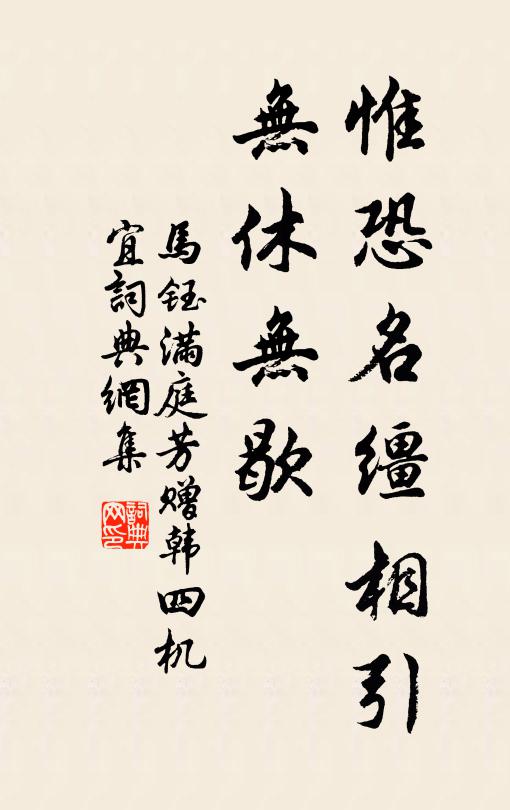 惟恐名繮相引
無休無歇
馬鈺滿庭芳赠韩四机
宜詞典網集
詞典网印